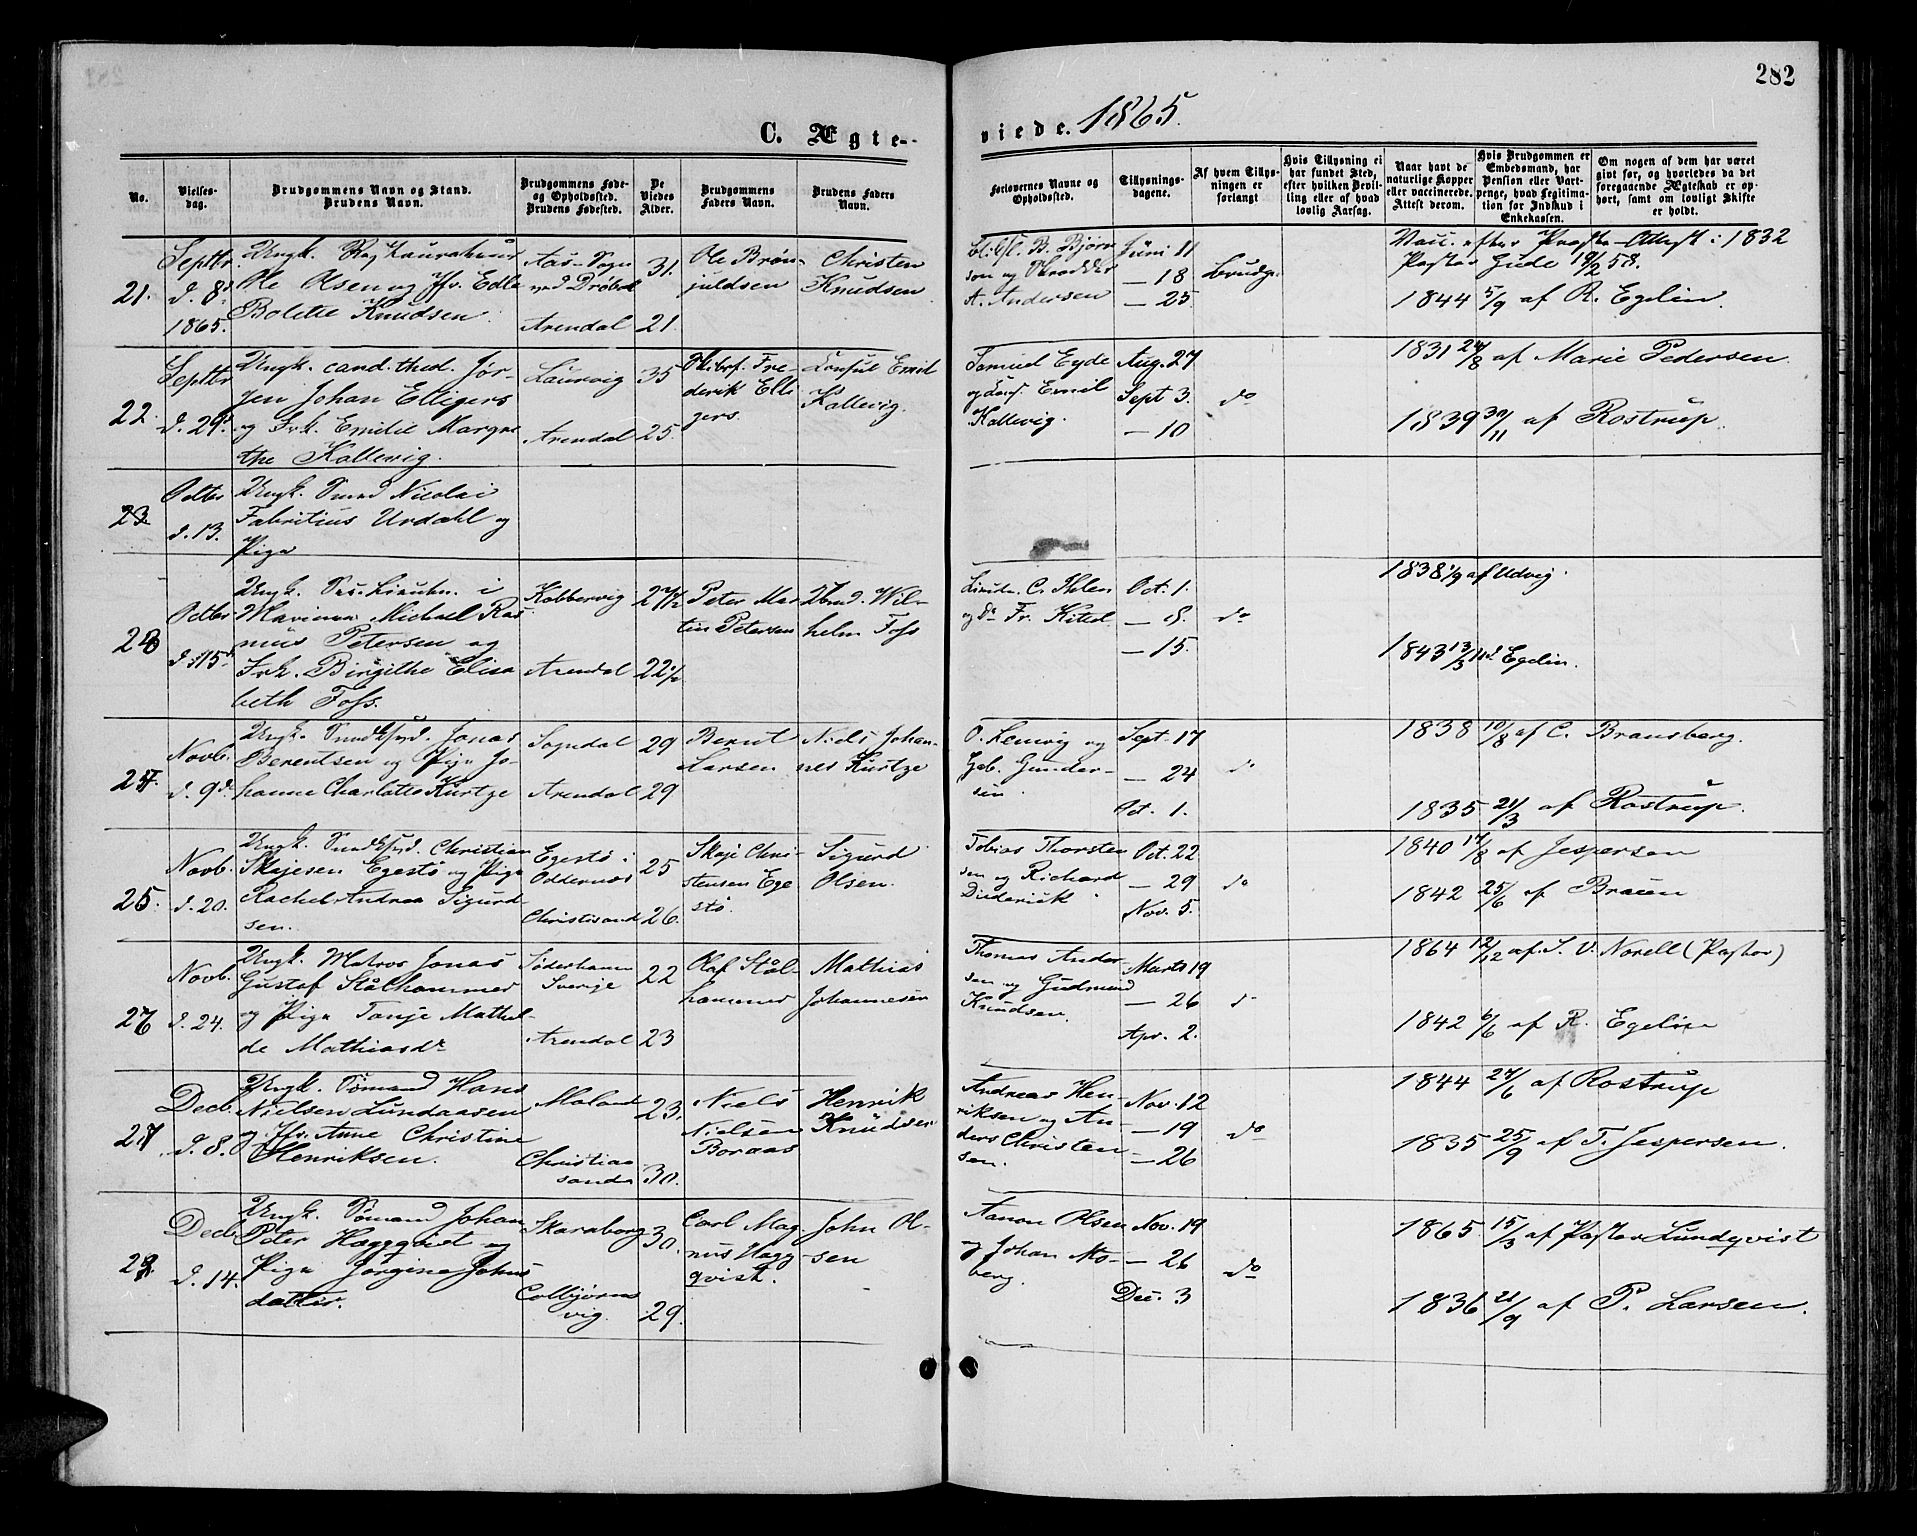 282
C. Ægte-
viede. 1865.
No.
Vielses-
dag.
Brudgommens Navn og Stand.
Brudens Navn.
Brudgommens Føde-
og Opholdssted.
Brudens Fødested.
De
Viedes
Alder.
Brudgommens
Faders Navn.
Brudens Faders
Navn.
Forlovernes Navne og
Opholdssted.
Tillysnings-
dagene.
Af hvem Tillys-
ningen er
forlangt
Hvis Tillysning ei
har fundet Sted,
efter hvilken Bevil-
ling eller af hvad
lovlig Aarsag.
Naar havt de
naturlige Kopper
eller vaccinerede.
Attest derom.
Hvis Brudgommen er
Embedsmand, har
Pension eller Vart-
penge, hvad Legitima-
tion for Indskud i
Enkekassen.
Om nogen af dem har været
givt før, og hvorledes da det
foregaaende Ægteskab er op-
hørt, samt om lovligt Skifte
er holdt.
21.
Septbr.
d. 8d
1865.
Ungk.
Ole Olsen og Jfr. Edle
Bolette Knudsen
Aas Sogn
ved Drøbak
Arendal
31.
21.
Ole Brøn-
juldsen
Christen
Knudsen
B. Bjørn
sen og
A. Andersen
Juni 11
— 18
— 25
Brudg.
Vacc. efter Præste-Attest i 1832
Pastor Gude 18/2 58.
1844 5/9 af R. Egelin.
22.
Septbr
d. 29d
Ungk. cand. theol. Jør-
gen Johan Elligers
og Frk. Emilie Margre
the Kallevig.
Laurvig
Arendal
35
25.
Fre-
derik Elli
gers
Consul Emil
Kallevig.
Samuel Eyde
og Cons. Emil
Kallevig.
Aug. 27
Sept 3.
— 10
do
1831 24/8 af Marie Pedersen
1839 30/11 af Rostrup.
23
Octbr
d. 13.
Ungk. Smed Nicolai
Fabritius Urdahl og
Pige
23
Octbr
d. 15d
Ungk. i
Marinen Michael Ras
mus Petersen og
Frk. Birgithe Elisa
beth Foss.
Kobbervig
Arendal
27 1/2
22 1/2
Peter Mar
tin Petersen
Wil-
helm Foss
C. Ihlen
og do Fr. Kitel
Oct. 1.
— 8.
— 15.
do
1838 1/9 af Udvig.
1843 13/3 Egelin.
24.
Novb.
d. 9d
Ungk. Jonas
Berentsen og Pige Jo-
hanne Charlotte Kurtze
Sogndal
Arendal
29
29
Berent
Larsen
Niels Johan-
nes Kurtze
O. Lervig og
Gab. Gunder-
sen.
Sept. 17
— 24
Oct. 1.
do
1838 10/8 af C. Bransberg.
1835 21/3 af Rostrup.
25.
Novb.
d. 20.
Ungk. Christian
Skajesen Egestø og Pige
Rachel Andrea Sigurd
sen.
Egestø i
Oddernæs
Christiansand
25
26.
Skaje Chri-
stensen Ege
stø.
Sigurd
Olsen.
Tobias Thorsten
sen og Richard
Diderick
Oct. 22
— 29
Nov. 5.
do
1840 17/8 af Jespersen
1842 25/6 af Braun
26
Novb.
d. 24.
Ungk. Matros Jonas
Gustaf Stålhammer
og Pige Tanje Mathil-
de Mathiasdr
Søderhamn
Sverige
Arendal
22
23
Olaf Stål-
hammer
Mathias
Johannesen
Thomas Ander
sen og Gudmund
Knudsen.
Marts 19
— 26
Apr. 2.
do
1864 12/12 af S. V. Norell (Pastor)
1842 6/6 af R. Egelin
27
Decb.
d. 8.
Ungk. Sømand Hans
Nielsen Lundaasen
og Jfr. Anne Christine
Henriksen.
Moland
Christian
sands
23.
30.
Niels
Nielsen
Boraas
Henrik
Knudsen
Andreas Hen-
riksen og An-
ders Christen
sen.
Nov. 12
— 19
— 26
do
1844 24/6 af Rostrup
1835 25/9 af T. Jespersen.
28
Decb
d. 14.
Ungk. Sømand Johan
Peter Haggqvist og
Pige Jørgine Johns
datter.
Skaraborg
Colbjørns
vig.
30.
29.
Carl Mag-
nus Hagg
qvist.
John Ol-
sen
Aanon Olsen
og Johan Mo-
berg.
Nov. 19
— 26
Dec. 3
do
1865 15/3 af Pastor Lundqvist
1836 21/9 af P. Larsen.